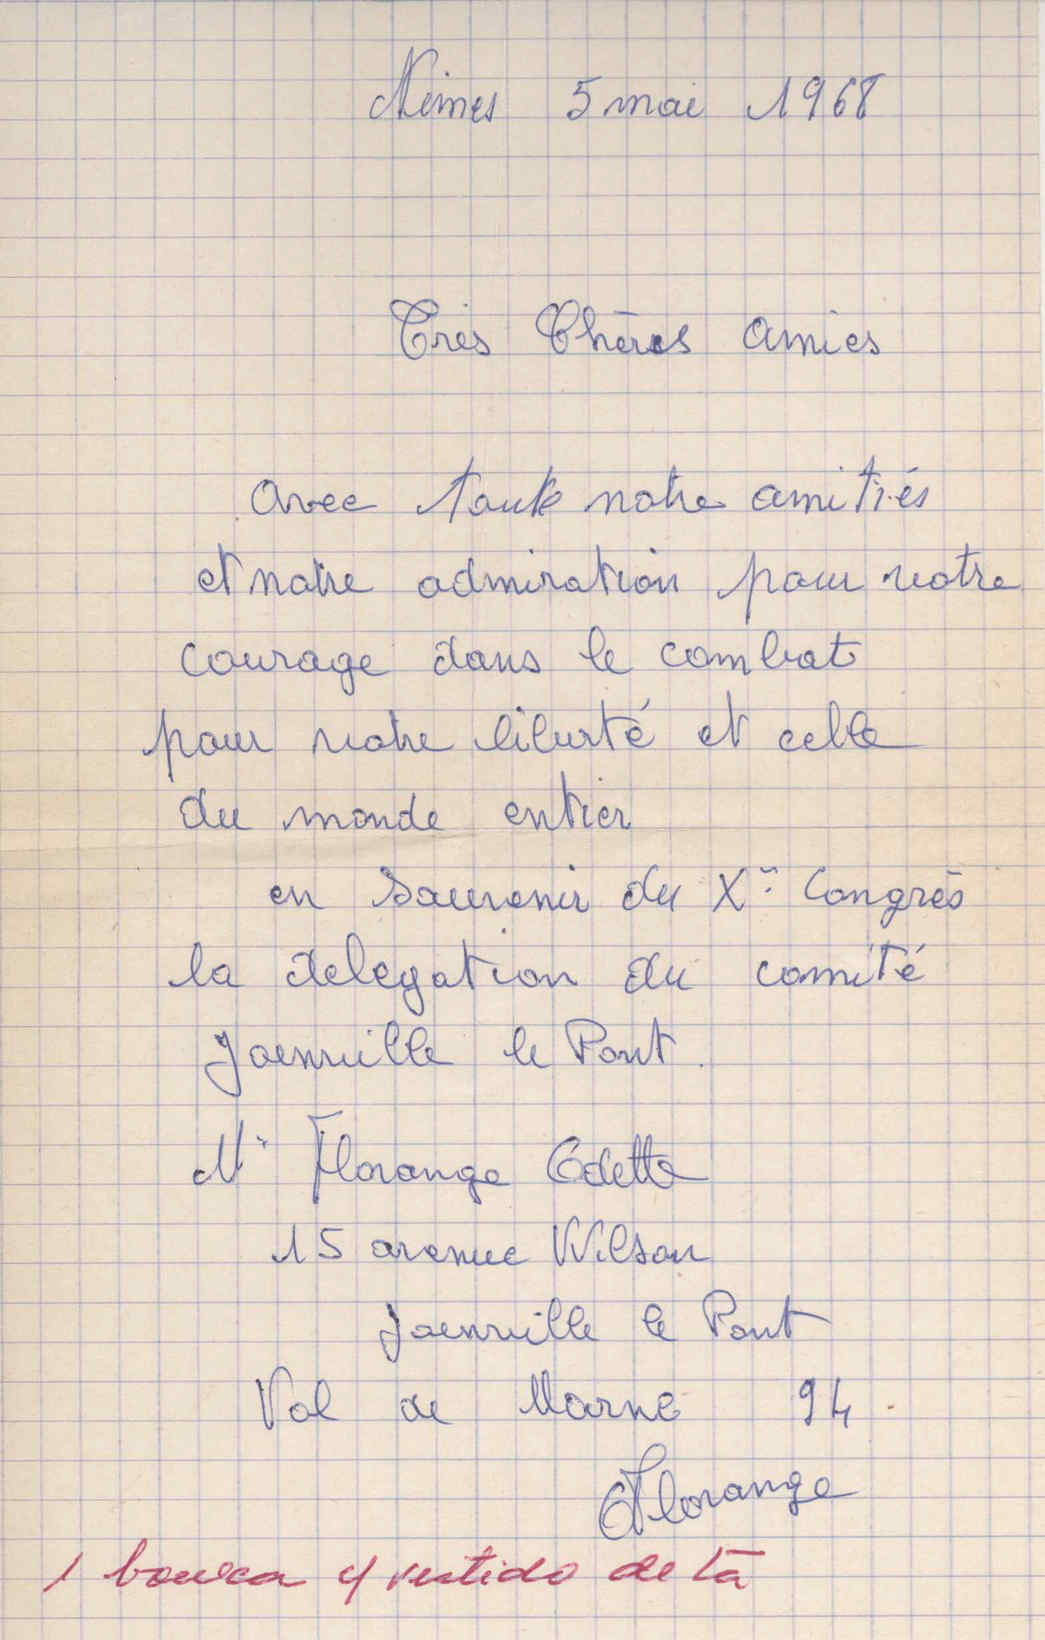 Nimes 5 mai 1968
Très Chères amies
avec toute notre amitiés
et notre admiration pour votre
courage dans le combat
pour votre liberté et celle
du monde entier
en souvenir du Xe Congrès
la delegation du comité
Joenville le Pont.
Me Florange Odette
15 avenue Wilson
Joenville le Pont
Val de Marne 94.
OFlorange
1 y vestido de